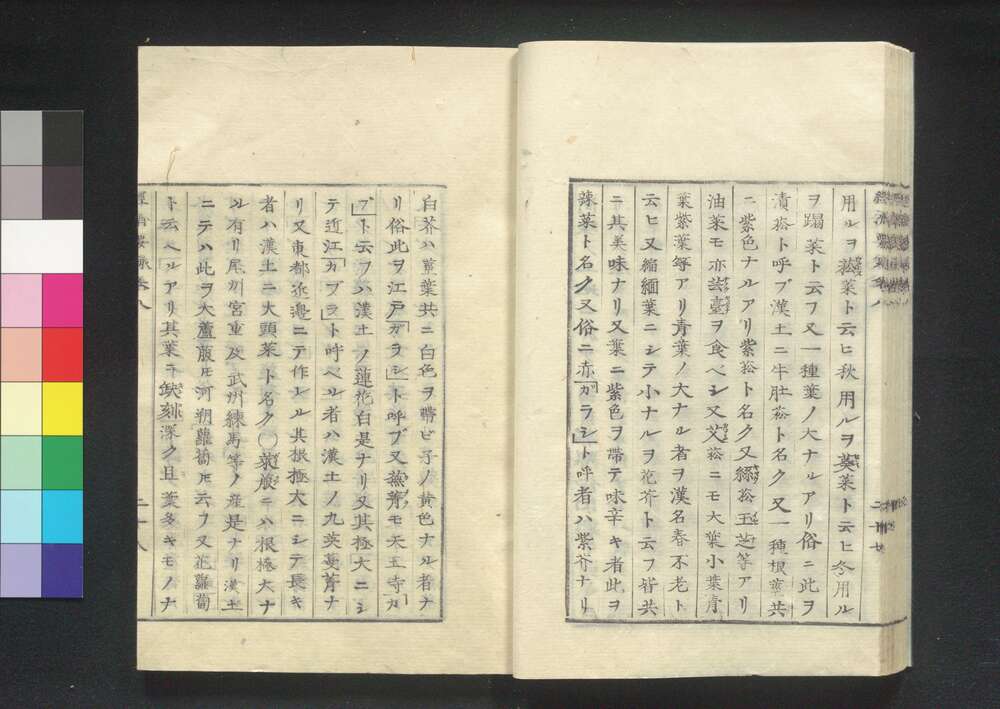 用ルヲ菘菜ト云ヒ秋用ルヲ葵菜ト云ヒ冬用ル
ヲ蹋菜ト云フ又一種葉ノ大ナルアリ俗ニ此ヲ
漬菘ト呼ブ漢土ニ牛肚菘ト名ク又一種根葉共
ニ紫色ナルアリ紫菘ト名ク又菘玉芝等アリ
油菜モ亦臺ヲ食ベシ又艾菘ニモ大葉小葉青
葉紫葉等アリ青葉ノ大ナル者ヲ漢名春不老ト
云ヒ又縮緬葉ニシテ小ナルヲ花芥ト云フ皆共
ニ其美味ナリ又葉ニ紫色ヲ帶テ味辛キ者此ヲ
辣菜ト名ク又俗ニ赤「ガラシ」ト呼者ハ紫芥ナリ
二十七
白芥ハ莖葉共ニ白色ヲ帶ビ子ノ黄色ナル者ナ
リ俗此ヲ江戸「ガラシ」ト呼ブ又蕪菁モ天王寺「カ
ブ」ト云フハ漢土ノ蓮花白是ナリ又其極大ニシ
テ近江「カブラ」ト呼ベル者ハ漢土ノ九英蔓菁ナ
リ又東都近邉ニテ作レル其根極大ニシテ長キ
者ハ漢土ニ大頭菜ト名ク〇萊菔ニハ根極大ナ
ル有リ尾州宮重及武州練馬等ノ産是ナリ漢土
ニテハ此ヲ大蘆菔トモ河朔蘿蔔トモ云フ又花蘿蔔
ト云ヘルアリ其葉ニ缺刻深ク且葉多キモノナ
二十八